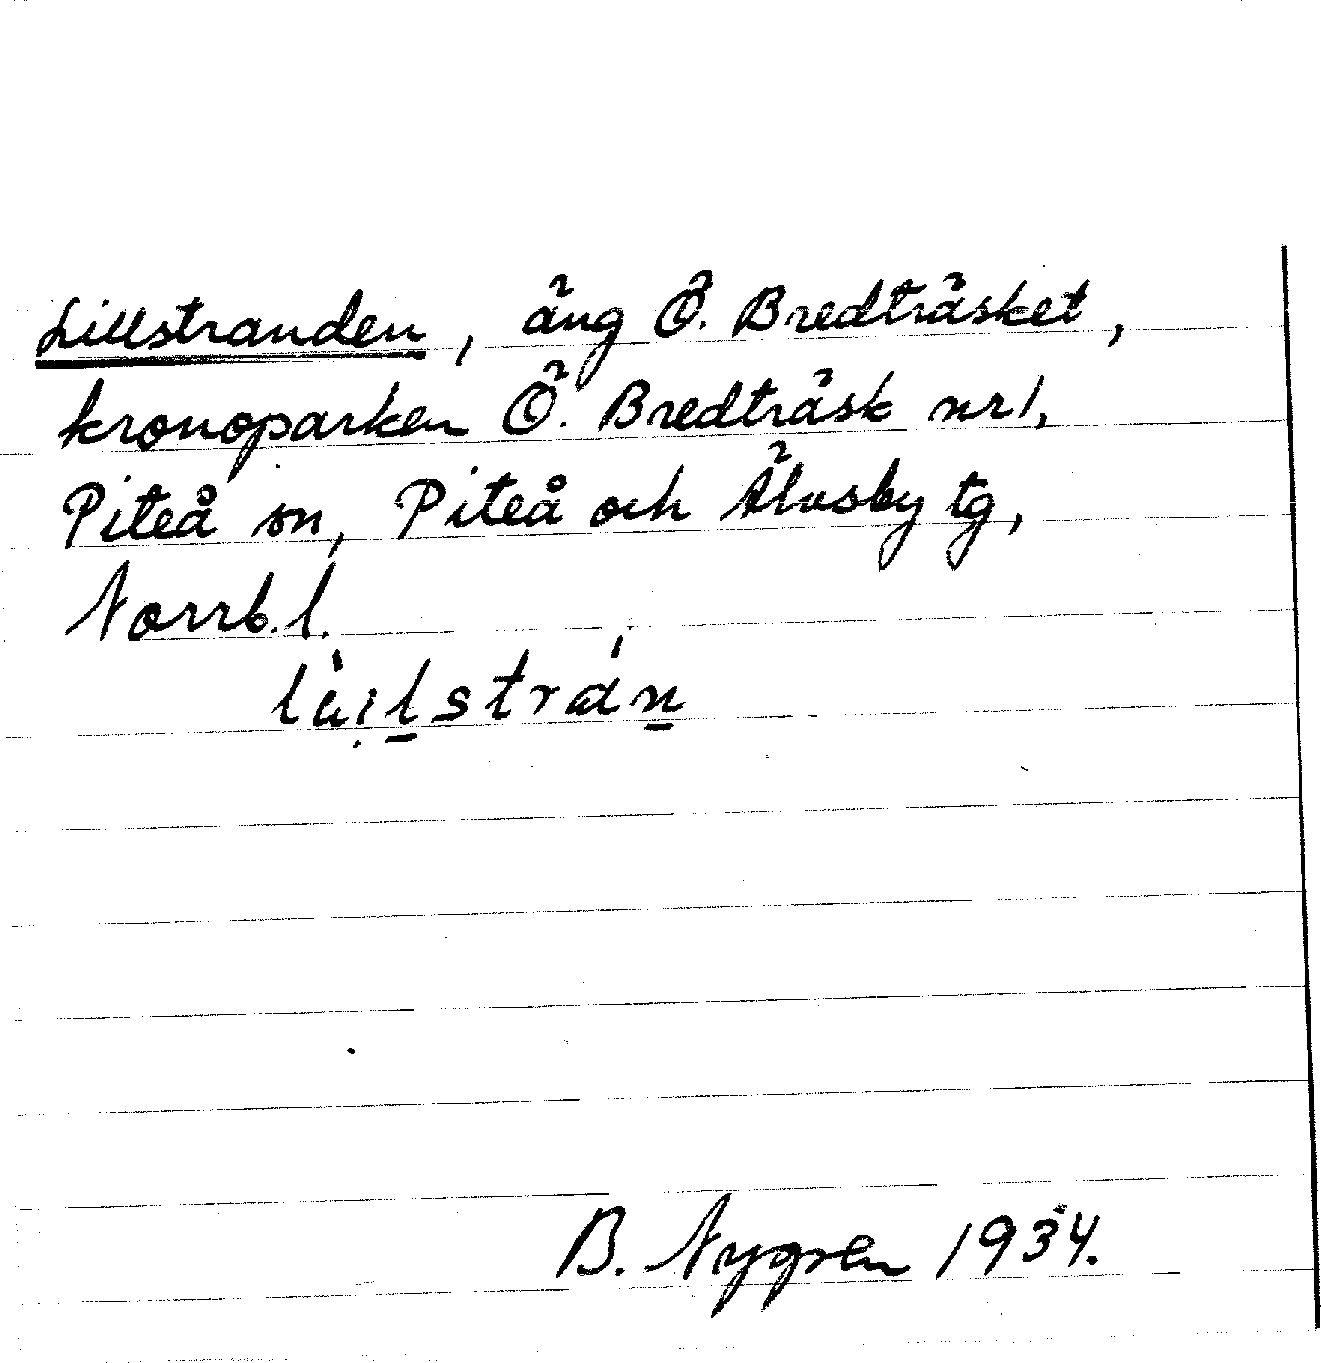 Lillstranden, äng Ö. Bredträsket,
kronoparken Ö. Bredträsk nr 1,
Piteå sn, Piteå och Älvsby tg,
Norrb. l.
B. Nygren 1934.